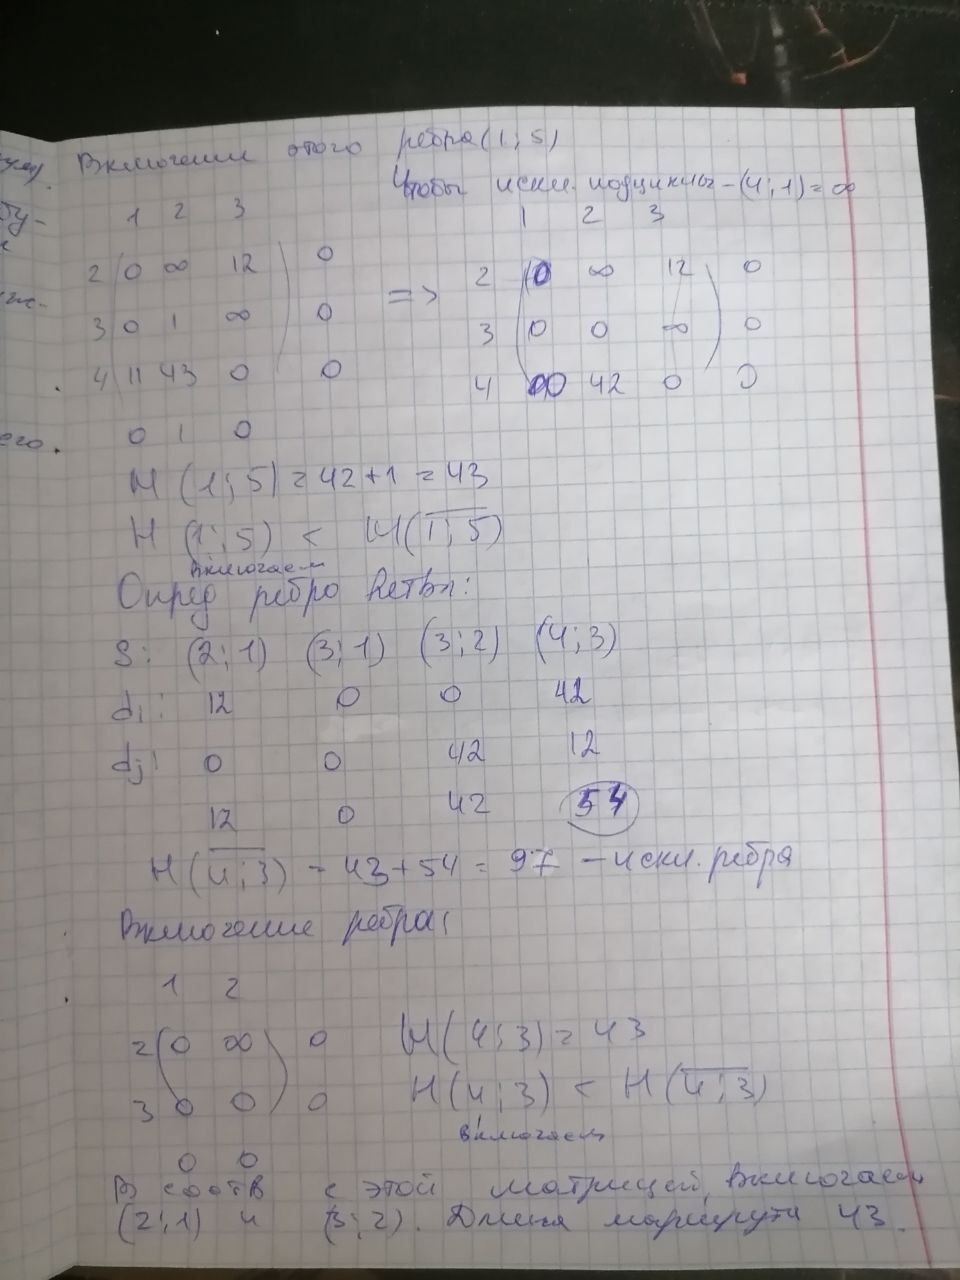 Включении этого ребра (1; 5)
Чтобы искл. подциклы - (4; 1) = ∞
1 2 3
2 0 ∞ 12 0
3 0 1 ∞ 0
4 11 43 0 0
0 1 0
=>
1 2 3
2 0 ∞ 12 0
3 0 0 ∞ 0
4 ∞ 42 0 0
H (1; 5) = 42 + 1 = 43
H (1; 5) < H(1; 5)
включаем
Опред ребро ветвл:
S: (2; 1) (3; 1) (3; 2) (4; 3)
di: 12 0 0 42
dj: 0 0 42 12
12 0 42 54
H (4; 3) = 43 + 54 = 97 - искл. ребра
Включение ребра:
1 2
2 0 ∞ 0
3 0 0 0
0 0
H (4; 3) = 43
H (4; 3) < H (4; 3)
включаем
В соотв с этой матрицей, включаем
(2; 1) и (3; 2). Длина маршрута 43.